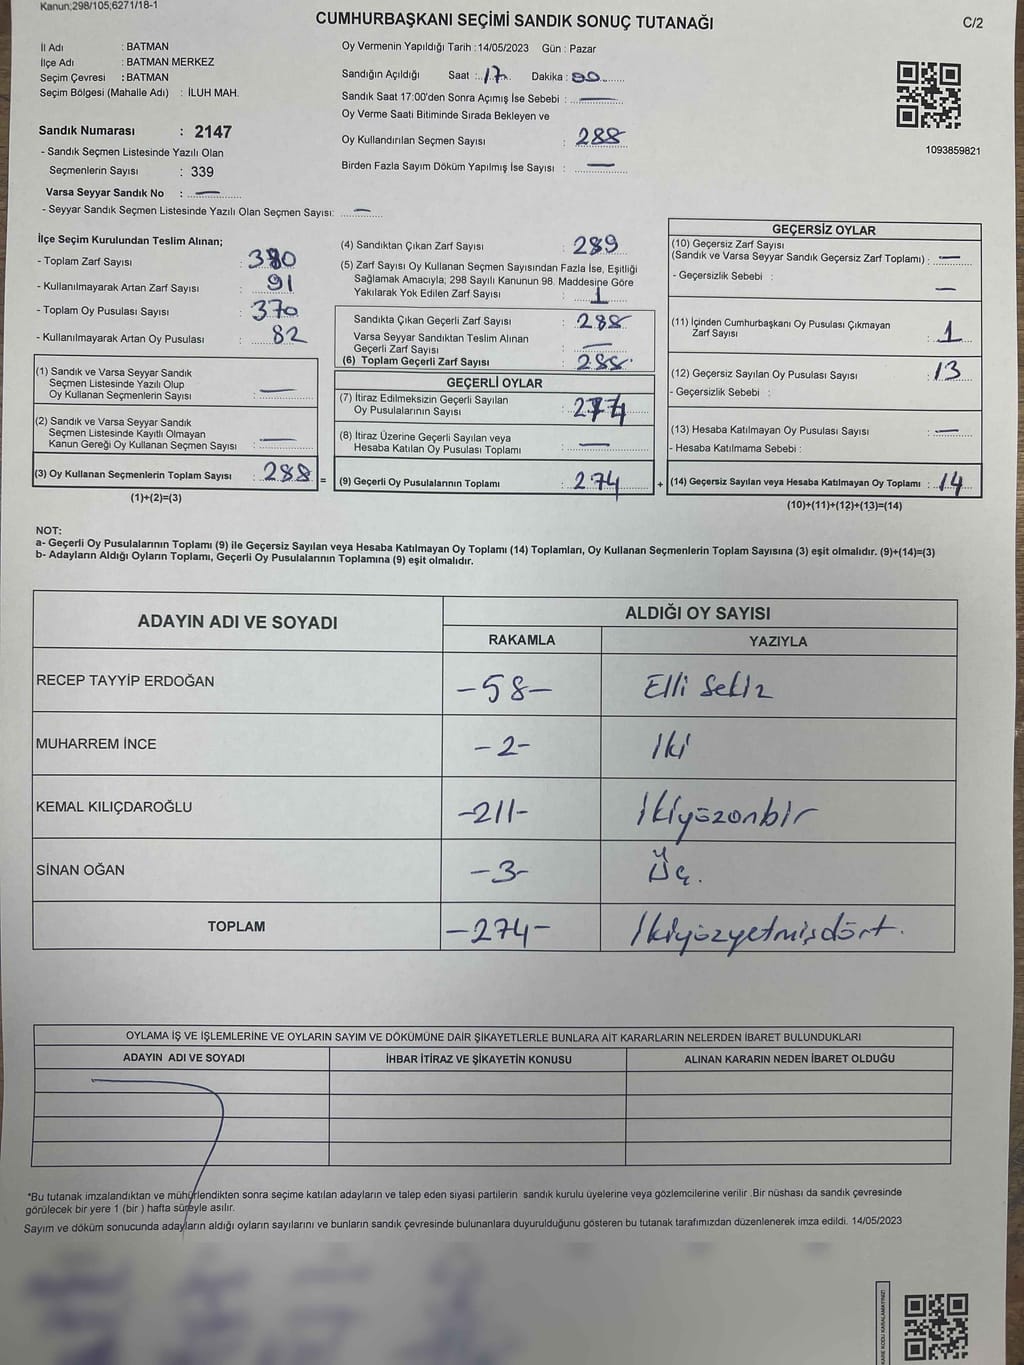 Kanun;298/105;6271/18-1
CUMHURBAŞKANI SEÇİMİ SANDIK SONUÇ TUTANAĞI
C/2
İl Adı : BATMAN
İlçe Adı : BATMAN MERKEZ
Seçim Çevresi : BATMAN
Seçim Bölgesi (Mahalle Adı) : İLUH MAH.
Sandık Numarası : 2147
- Sandık Seçmen Listesinde Yazılı Olan
Seçmenlerin Sayısı : 339
Varsa Seyyar Sandık No : —
- Seyyar Sandık Seçmen Listesinde Yazılı Olan Seçmen Sayısı: —
Oy Vermenin Yapıldığı Tarih : 14/05/2023 Gün : Pazar
Sandığın Açıldığı Saat : 17 Dakika : 00
Sandık Saat 17:00'den Sonra Açımış İse Sebebi : —
Oy Verme Saati Bitiminde Sırada Bekleyen ve
Oy Kullandırılan Seçmen Sayısı : 288
Birden Fazla Sayım Döküm Yapılmış İse Sayısı : —
1093859821
İlçe Seçim Kurulundan Teslim Alınan;
- Toplam Zarf Sayısı : 380
- Kullanılmayarak Artan Zarf Sayısı : 91
- Toplam Oy Pusulası Sayısı : 370
- Kullanılmayarak Artan Oy Pusulası : 82
(1) Sandık ve Varsa Seyyar Sandık
Seçmen Listesinde Yazılı Olup
Oy Kullanan Seçmenlerin Sayısı : —
(2) Sandık ve Varsa Seyyar Sandık
Seçmen Listesinde Kayıtlı Olmayan
Kanun Gereği Oy Kullanan Seçmen Sayısı : —
(3) Oy Kullanan Seçmenlerin Toplam Sayısı : 288 =
(1)+(2)=(3)
(4) Sandıktan Çıkan Zarf Sayısı : 289
(5) Zarf Sayısı Oy Kullanan Seçmen Sayısından Fazla İse, Eşitliği
Sağlamak Amacıyla; 298 Sayılı Kanunun 98. Maddesine Göre
Yakılarak Yok Edilen Zarf Sayısı : 1
Sandıkta Çıkan Geçerli Zarf Sayısı : 288
Varsa Seyyar Sandıktan Teslim Alınan
Geçerli Zarf Sayısı : —
(6) Toplam Geçerli Zarf Sayısı : 288
GEÇERLİ OYLAR
(7) İtiraz Edilmeksizin Geçerli Sayılan
Oy Pusulalarının Sayısı : 274
(8) İtiraz Üzerine Geçerli Sayılan veya
Hesaba Katılan Oy Pusulası Toplamı : —
(9) Geçerli Oy Pusulalarının Toplamı : 274 +
GEÇERSİZ OYLAR
(10) Geçersiz Zarf Sayısı
(Sandık ve Varsa Seyyar Sandık Geçersiz Zarf Toplamı) : —
- Geçersizlik Sebebi : —
(11) İçinden Cumhurbaşkanı Oy Pusulası Çıkmayan
Zarf Sayısı : 1
(12) Geçersiz Sayılan Oy Pusulası Sayısı : 13
- Geçersizlik Sebebi :
(13) Hesaba Katılmayan Oy Pusulası Sayısı : —
- Hesaba Katılmama Sebebi :
(14) Geçersiz Sayılan veya Hesaba Katılmayan Oy Toplamı : 14
(10)+(11)+(12)+(13)=(14)
NOT:
a- Geçerli Oy Pusulalarının Toplamı (9) ile Geçersiz Sayılan veya Hesaba Katılmayan Oy Toplamı (14) Toplamları, Oy Kullanan Seçmenlerin Toplam Sayısına (3) eşit olmalıdır. (9)+(14)=(3)
b- Adayların Aldığı Oyların Toplamı, Geçerli Oy Pusulalarının Toplamına (9) eşit olmalıdır.
ADAYIN ADI VE SOYADI
ALDIĞI OY SAYISI
RAKAMLA YAZIYLA
RECEP TAYYİP ERDOĞAN -58- Elli Sekiz
MUHARREM İNCE -2- İki
KEMAL KILIÇDAROĞLU -211- İkiyüzonbir
SİNAN OĞAN -3- Üç.
TOPLAM -274- İkiyüzyetmişdört.
OYLAMA İŞ VE İŞLEMLERİNE VE OYLARIN SAYIM VE DÖKÜMÜNE DAİR ŞİKAYETLERLE BUNLARA AİT KARARLARIN NELERDEN İBARET BULUNDUKLARI
ADAYIN ADI VE SOYADI İHBAR İTİRAZ VE ŞİKAYETİN KONUSU ALINAN KARARIN NEDEN İBARET OLDUĞU
*Bu tutanak imzalandıktan ve mühürlendikten sonra seçime katılan adayların ve talep eden siyasi partilerin sandık kurulu üyelerine veya gözlemcilerine verilir .Bir nüshası da sandık çevresinde
görülecek bir yere 1 (bir ) hafta süreyle asılır.
Sayım ve döküm sonucunda adayların aldığı oyların sayılarını ve bunların sandık çevresinde bulunanlara duyurulduğunu gösteren bu tutanak tarafımızdan düzenlenerek imza edildi. 14/05/2023
KARE KODU KARALAMAYINIZ!